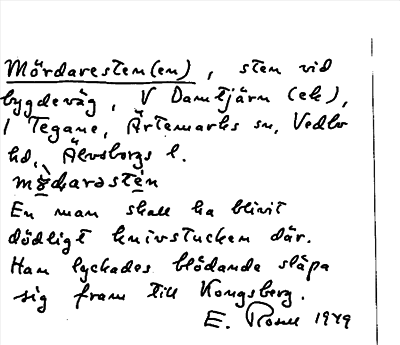 Mördaresten(en), sten vid
bygdeväg, V Damtjärn (ek),
1 Tegane, Ärtemarks sn, Vedbo
hd, Älvsborgs l.
En man skall ha blivit
dödligt knivstucken där.
Han lyckades blödande släpa
sig fram till Kongsberg.
E. 1979